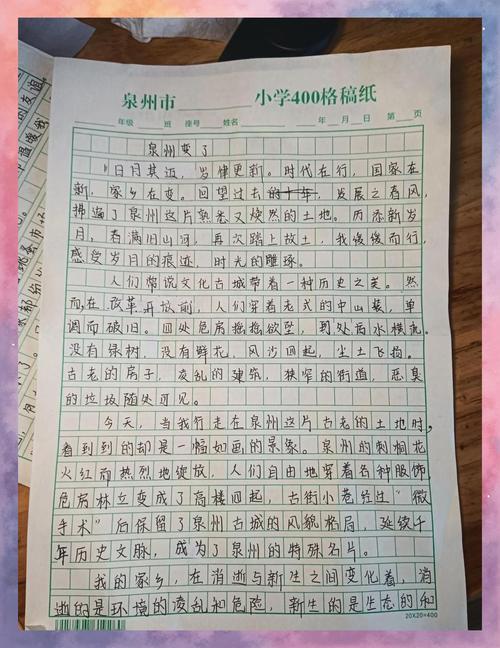 泉州市 小学400格稿纸
年级 班 座号 姓名 年 月 日 第 页
泉州变了
"日月其迈,岁律更新。时代在行,国家在
新,家乡在变。回望过去的十年,发展之春风,
拂遍了泉州这片熟悉又焕然的土地。历添新岁
月,春满旧山河,再次踏上故土,我缓缓而行,
感受岁月的痕迹,时光的雕琢。
人们常说文化古城带着一种历史之美。然
而,在改革开放前,人们穿着老式的中山装,单
调而破旧。四处危房摇摇欲坠,到处污水横流。
没有绿树,没有鲜花,风沙四起,尘土飞扬。
古老的房子,凌乱的建筑,狭窄的街道,恶臭
的垃圾随处可见。
今天,当我行走在泉州这片古老的土地时,
看到到的却是一幅如画的景象。泉州的刺桐花
火红而热烈地绽放,人们自由地穿着各种服饰,
危房林立变成了高楼四起,古街小巷经过"微
手术"后保留了泉州古城的风貌格局,延续千
年历史文脉,成为了泉州的特殊名片。
我的家乡,在消逝与新生之间变化着,消
逝的是环境的凌乱和危险,新生的是生态的和
20X20=400